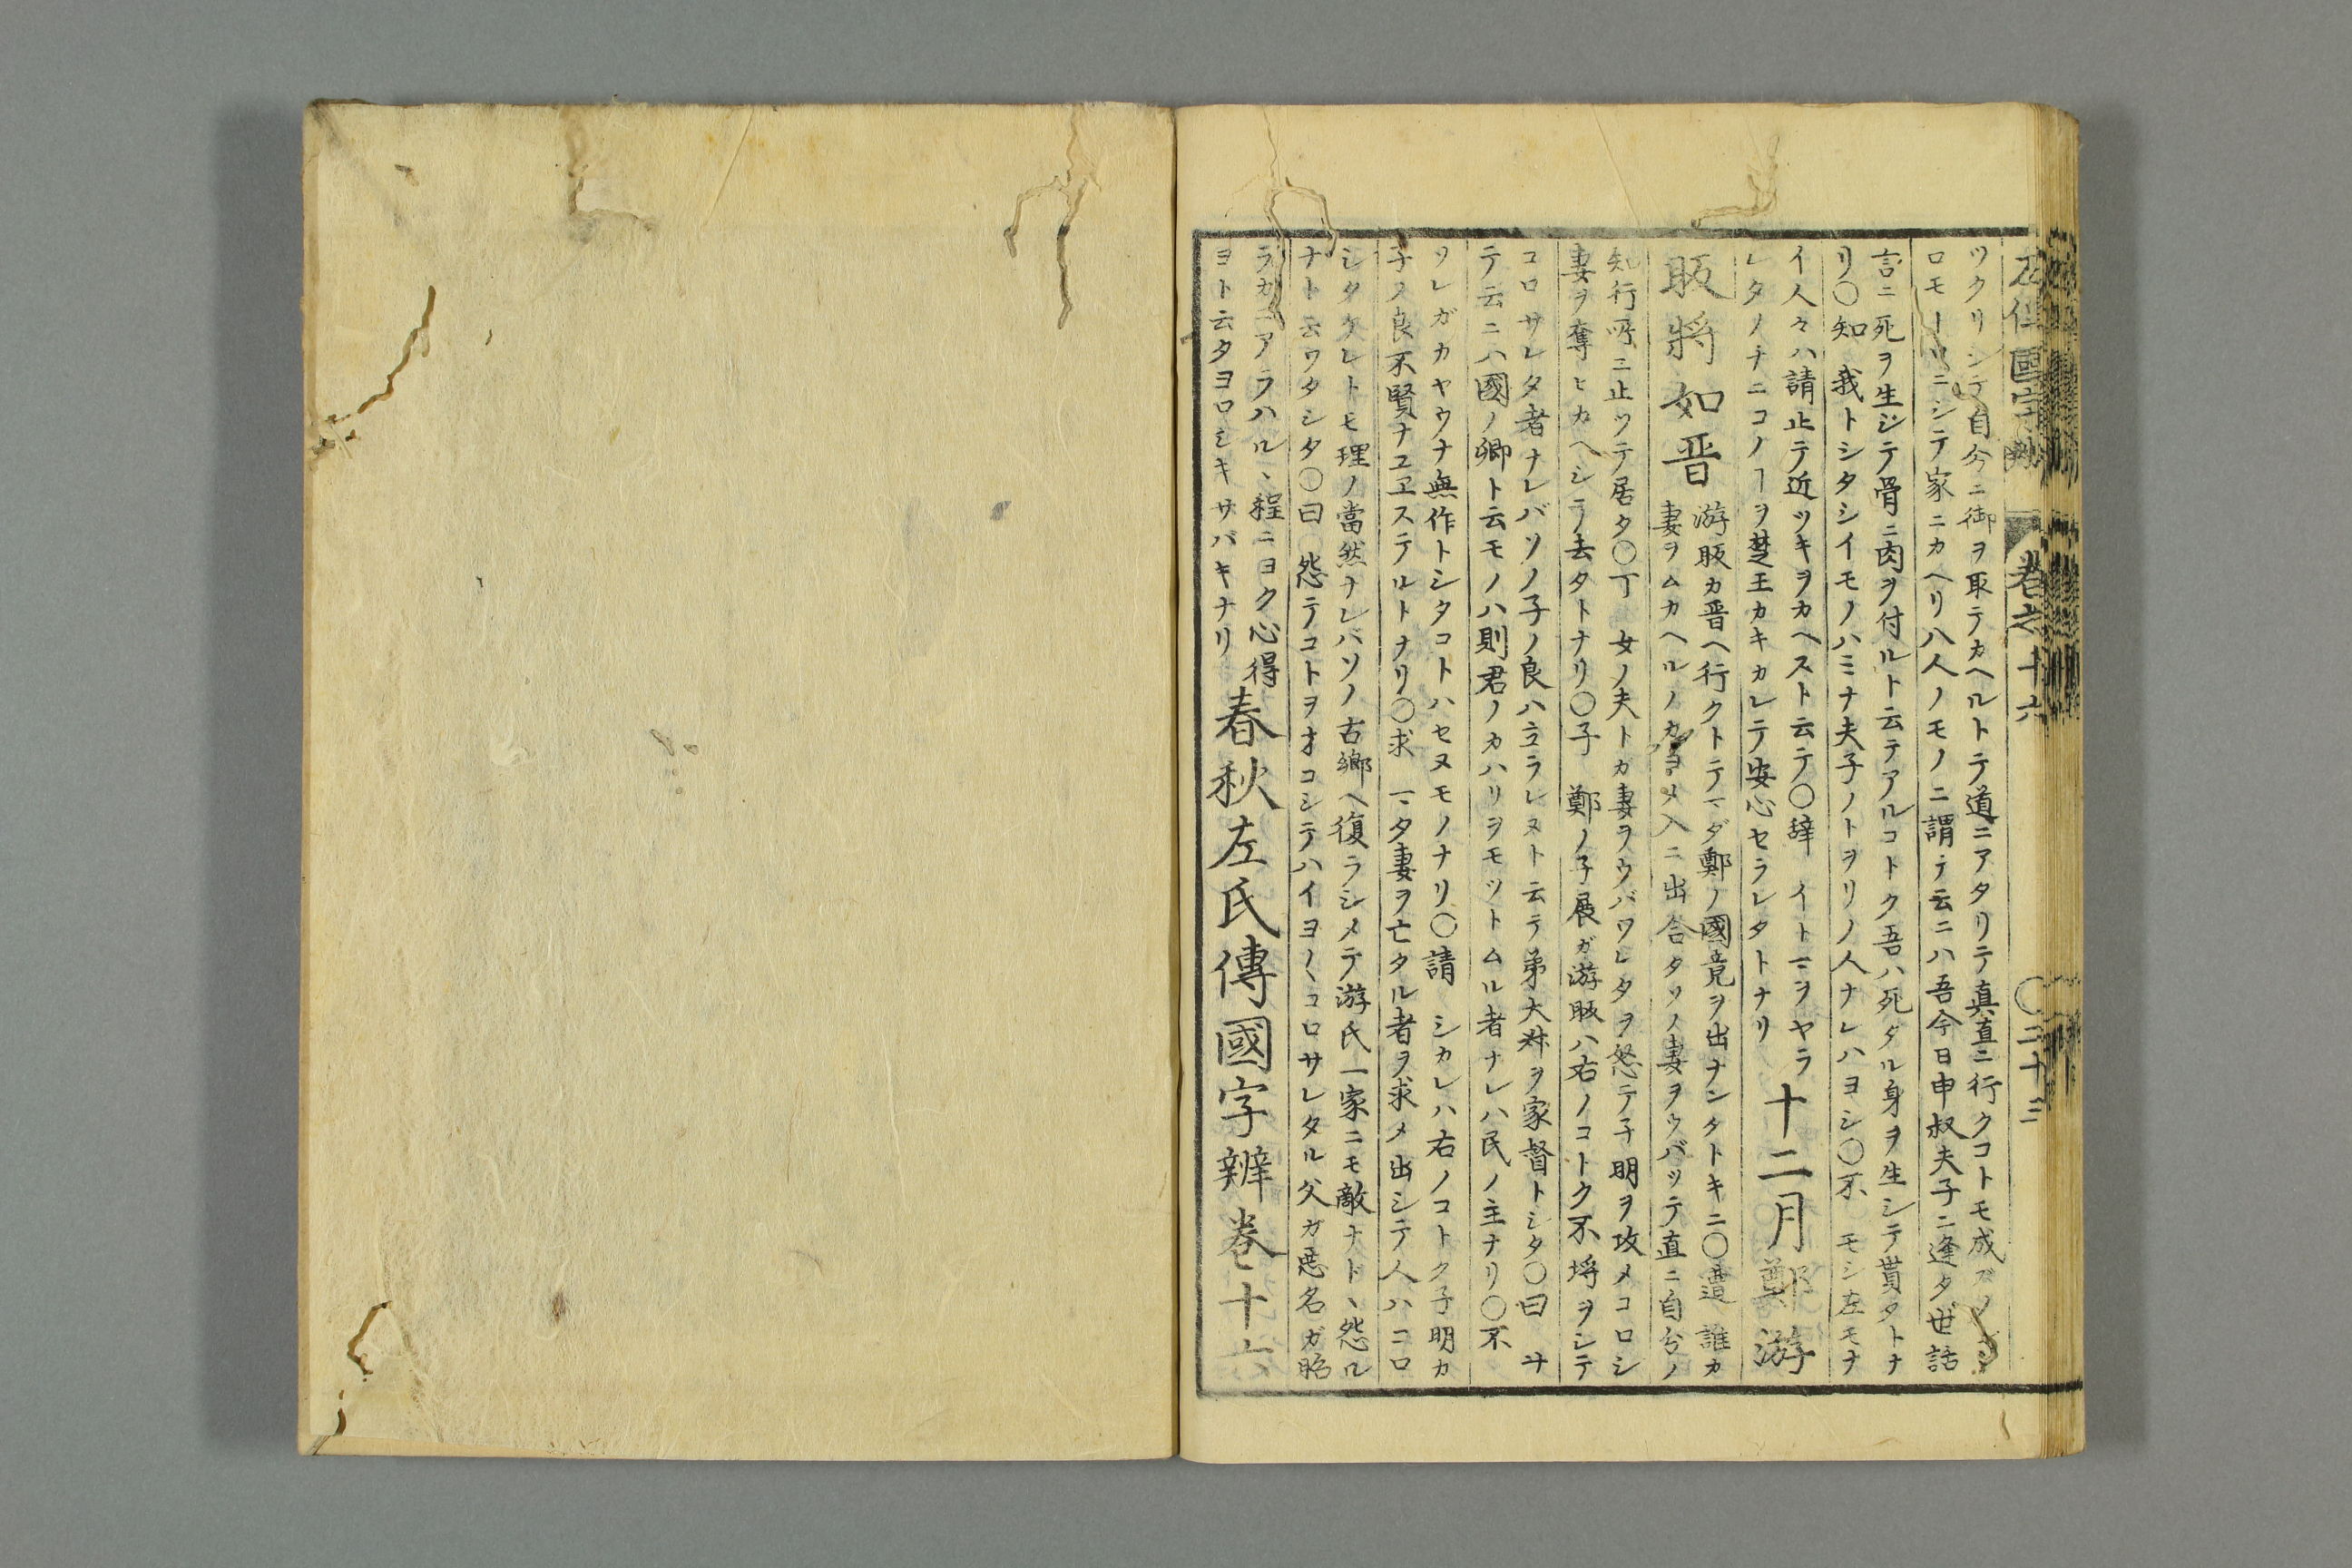 左傳國字辨 卷之十六 〇二十三
ツクリシテ自今ニ御ヲ取テカヘルトテ道ニアタリテ真直ニ行クコトモ成
ロモーツニシテ家ニカヘリ八人ノモノニ謂テ云ニハ吾今日申叔夫子ニ逢タ世話
言ニ死ヲ生シテ骨ニ肉ヲ付ルト云テアルコトク吾ハ死タル身ヲ生シテ貰タトナ
リ〇知 我トシタシイモノハミナ夫子ノトヲリノ人ナレハヨシ〇不 モシ左モナ
イ人々ハ請止テ近ツキヲカヘスト云テ〇辞 イトマヲヤラ
レタノチニコノヿヲ楚王カキカレテ安心セラレタトナリ
十二月鄭游
眅将如晋
游眅カ晋ヘ行クトテマダ鄭ノ國竟ヲ出ナンタトキニ〇遭 誰カ
妻ヲムカヘルノカヨメ入ニ出合タソノ妻ヲウバッテ直ニ自分ノ
知行所ニ止ツテ居タ〇丁 女ノ夫トカ妻ヲウバワレタヲ怒テ子明ヲ攻メコロシ
妻ヲ奪ヒカヘシテ去タトナリ〇子 鄭ノ子展ガ游眅ハ右ノコトク不埒ヲシテ
コロサレタ者ナレバソノ子ノ良ハ立ラレヌト云テ弟大叔ヲ家督トシタ〇曰 ヰ
テ云ニハ國ノ卿ト云モノハ則君ノカハリヲモツトムル者ナレハ民ノ主ナリ〇不
ソレガカヤウナ無作トシタコトハセヌモノナリ〇請 シカレハ右ノコトク子明カ
子ノ良不賢ナユヱステルトナリ〇求 マタ妻ヲ亡タル者ヲ求メ出シテ人ハコロ
シタケレトモ理ノ當然ナレバソノ古郷ヘ復ラシメテ游氏一家ニモ敵ナド、怨ル
ナト云ワタシタ〇曰 怨テコトヲオコシテハイヨ〱コロサレタル父ガ悪名ガ昭
ラカニアラハル、程ニヨク心得
ヨト云タヨロシキサバキナリ
春秋左氏傳國字辨卷十六